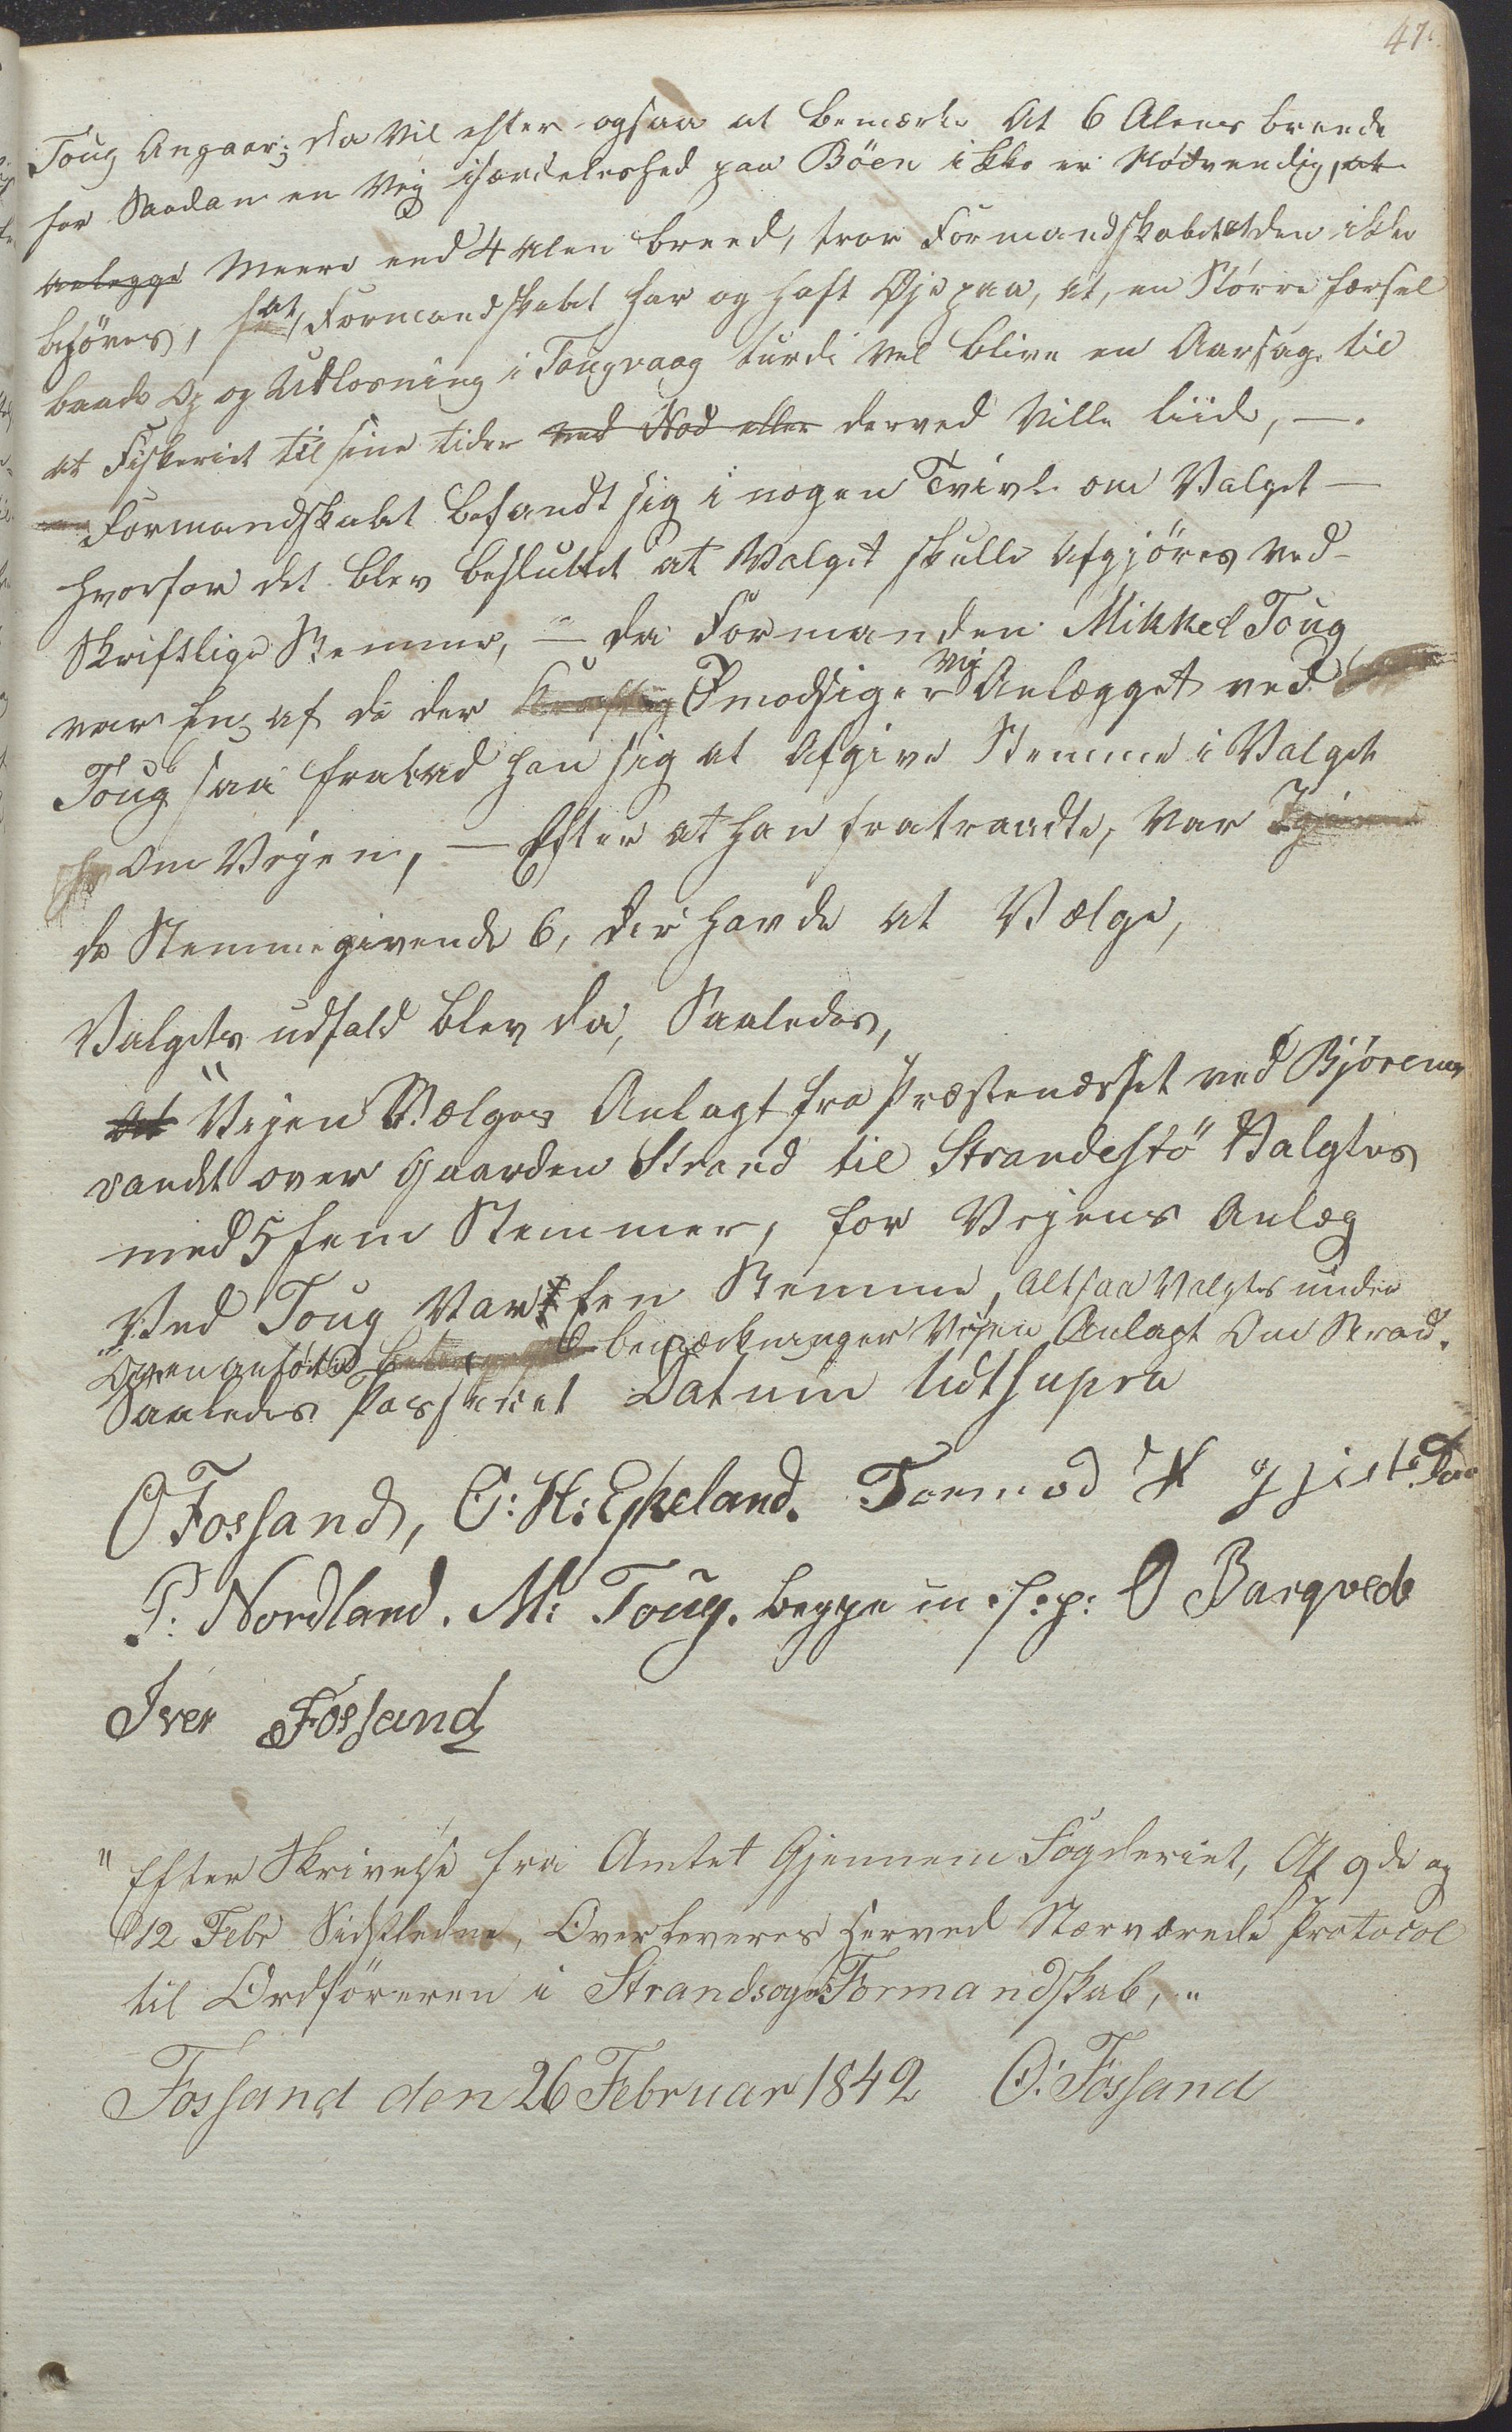 47.
Toug Angaar; da vil efter ogsaa at bemærke At 6 Alens breede
for Saadan en Vej isærdeleshed paa Böen ikke er Nödvendig, at
anlegge Meere end 4 Alen breed, troer Formandskabet at den ikke
behöves, at, Formandskabet har og haft Øje paa, at, en Större færsel
baade Op og Udlosning i Tougvaag turde vel blive en Aarsage til
at Fiskeriet til sine tider ved Nod eller derved ville liide, —.
Formandskabet befandt sig i nogen Tvivl om Valget —
hvorfor det blev besluttet at Valget skulle Afgjöres ved
Skriftlige Stemmer, — da Formanden Mikkel Toug
var en af de der Imodsiger Vej Anlægget ved
Toug saa frabad han sig at Afgive Stemme i Valget
om Vejen, — Efter at han fratraadte, var
de Stemmegivende 6, der havde at Vælge,
Valgets udfald blev da, Saaledes,
at Vejen Vælges Anlagt fra Præstenæsset ved Bjørems
vandt over Gaarden Strand til Strandestö Valgtes
med 5 fem Stemmer, for Vejens Anlæg
Ved Toug Var 1 een Stemme, altsaa Valgtes under
Ovenanförte bemærkninger Vejen Anlagt Om Strand.
Saaledes Passeret Datum Udtsupra
O Fossand, C: H: Eskeland. Tormod
P. Nordland. M: Toug. begge m. f. p: O Barqvede
Iver Fossand
" Efter Skrivelse fra Amtet Gjennem Fogderiet, Af 9de og
12 Febr Sidstledne, Overleveres herved Nærværende Protocol
til Ordföreren i Strandsogns Formandskab, "
Fossand den 26 Februar 1842 O. Fossand